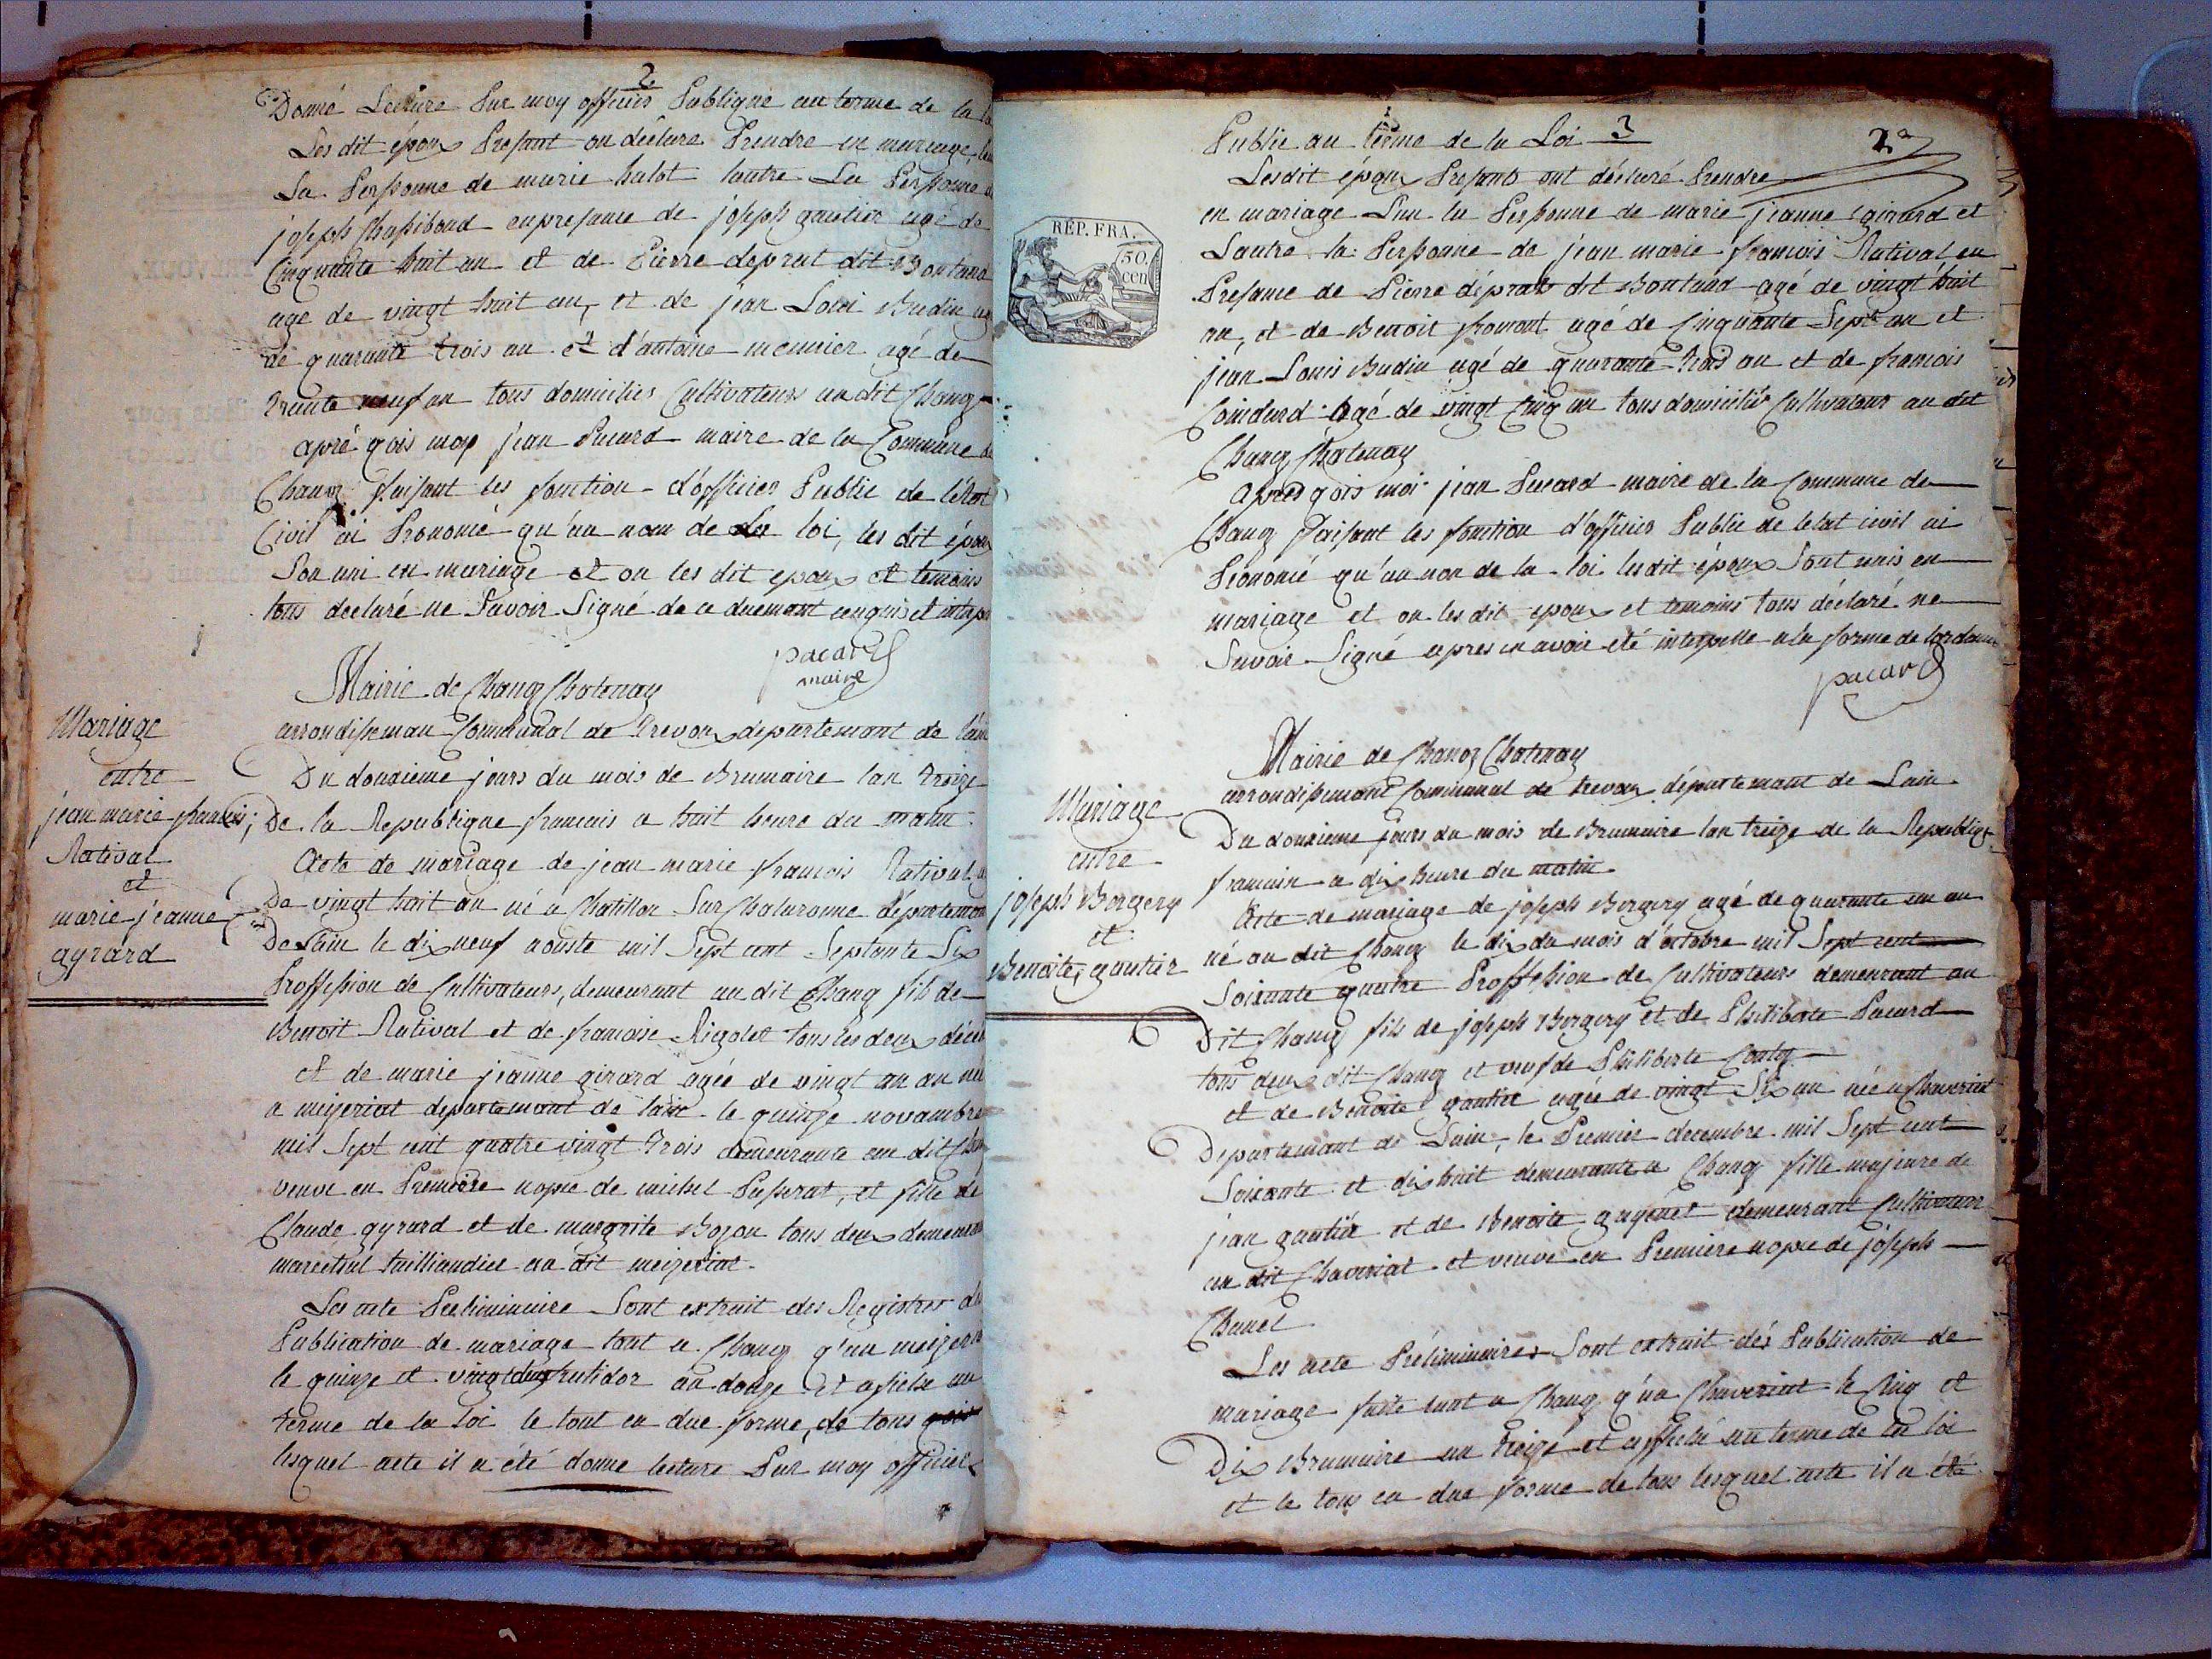 2
Donné Lecture Par moy officier Publigue au terme de la
Les dit époux Present on déclaré Prendre en mariage
La Persponne de marie halot lautre La Persponne
joseph Chassiboud enpresance de joseph gautier agé de
Cinquante huit an et de Pierre deprat dit Bontand
age de vingt huit an, et de jean Loui Budin
de quarante trois an et d'antoine meunier agé de
Trente neuf an tous domicilies Cultivateurs au dit Chanoz
apré qois moy jean Pacard maire de la Commune de
Chanoz faisant les fonction d'officier Public de létat
Civil ai Prononcé qu'au nom de La loi, les dit époux
Son uni en mariage et on les dit epoux et temoins
tous declaré ne Savoir Signé de ce duemant enquis et
pacard
maire
Mairie de Chanoz Chatenay
arrondisseman Communal de Trevoux departemont de lain
Mariage
entre
jean marie francois
Rativat
et
marie jeanne
gyrard
Du douxieme jours du mois de Brumaire lan Treize
De la Republigue francais a huit heure du matin
Acte de mariage de jean marie francois Rativat
De vingt huit an né a Chatillon Sur Chalaronne départemont
De Lain le dix neuf aouste mil Sept cent Septante Six
Proffession de Cultivateurs, demeurant au dit Chanoz fils de
Benoit Rativat et de francoise Rigolet tous les deux
et de marie jeanne girard agée de vingt an an
a meizeriat departemant de lain le quinze novambre
mil Sept cent quatre vingt Trois demeurante au dit
veuve en Premiere nopce de michel et fille de
Claude gyrard et de margrite Bojon tous deux
marechal taillandier au dit meizeriat
Les acte Preliminaire Sont extrait des Registres
Publication de mariage tant a Chanoz q'un
le quinze et frutidor an douze et afiché au
terme de la loi le tout en due forme, de tous
lesquel acte il a été donné lecture Par moy officier
3
2
Public au terme de la Loi
Lesdit époux Presants ont déclaré Prendre
en mariage Lun la Persponne de marie jeanne girard et
Lautre la Persponne de jean marie francois Rativat en
Presance de Pierre déprat dit Bontand agé de vingt huit
an, et de Benoit fromont agé de Cinquante Sept an et
jean Louis Budin agé de quarante Trois an et de francois
Coindard agé de vingt Cinq an tous domicilié Cultivateur au dit
Chanoz Chatenay
RÉP. FRA.
50.
cen
Apres qois moi jean Pacard maire de la Commune de
Chanoz faisant les fonction d'officier Public de letat civil ai
Prononcé qu'au non de la loi lesdit époux Sont unis en
mariage et on les dit epoux et temoins tous déclaré ne
Savoir Signé apres en avoir été interpelle a la forme de
pacard
Mairie de Chanoz Chatenay
arrondissemant Communal de trevoux départemant de Lain
Mariage
entre
joseph Borgery
et
Benoite gautier
Du douxieme jours du mois de Brumaire lan treize de la Republig
francain a dix heure du matin
Acte de mariage de joseph Borgery agé de quarante un an
né au dit Chanoz le dix du mois d'octobre mil Sept cent
Soixante quatre Proffession de Cultivateurs demeurant au
Dit Chanoz fils de joseph Borgery et de Philiberte Pacard
tous deux dit Chanoz et veuf de Philiberte
et de Benoite gautier agée de vingt Six an née a Chaveriat
Departemant de Lain, le Premier decembre mil Sept cent
Soixante et dix huit demeurante a Chanoz fille majeure de
jean gautier et de Benoite guyenet demeurant Cultivateur
au dit Chaveriat et veuve en Premiere nopce de joseph
Chanel
Les acte Préliminaires Sont extrait dés Publication de
mariage faite tant a Chanoz q'ua Chaveriat le Cinq et
Dix Brumaire an treize et affiché au terme de la loi
et le tous en due forme de tous lesquel acte il a été